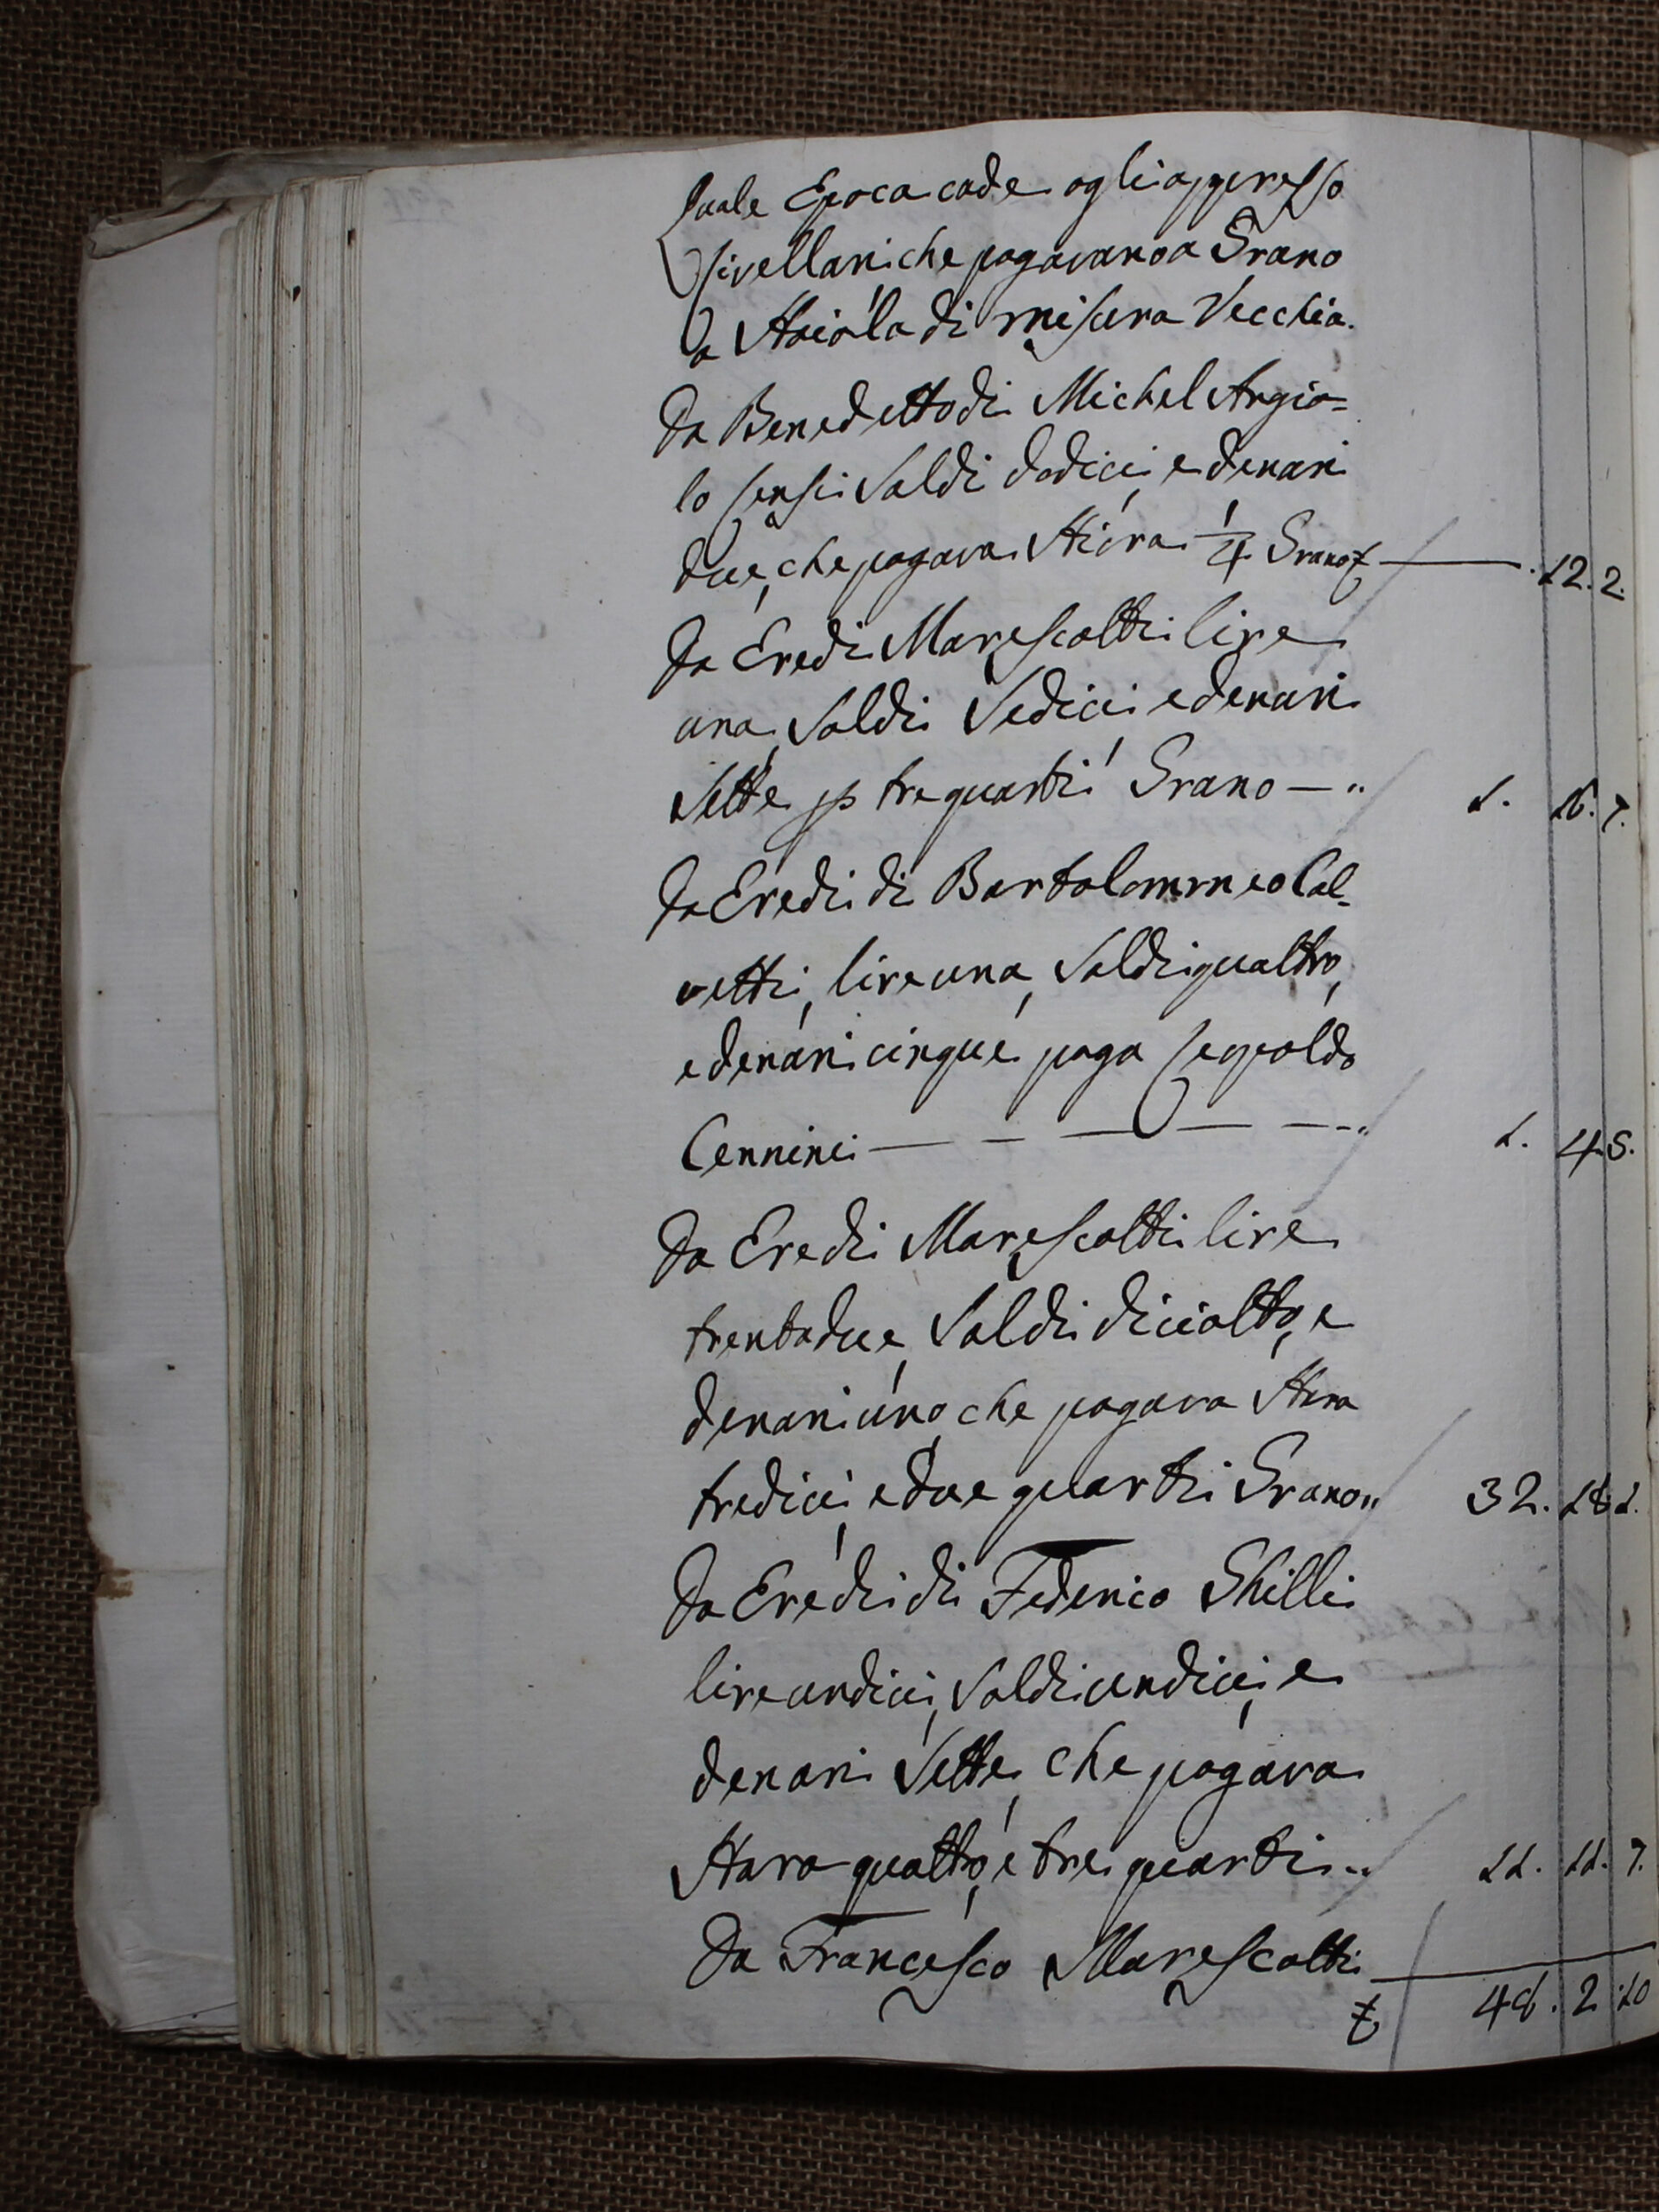 quale Epoca cade agli appresso
Livellari che pagavano a Grano
a Staiola di misura Vecchia.
Da Benedetto di Michel Angio=
lo Censi Soldi dodici, e denari
due, che pagava Stiora 1/4 Grano £ — . 12. 2.
Da Eredi Marescotti lire
una, Soldi Sedici e denari
Sette p tre quarti Grano — " 1. 16. 7.
Da Eredi di Bartolommeo Cal=
vetti, lire una, Soldi quattro,
e denari cinque paga Leopoldo
Cennini — — — — — " 1. 4. 5.
Da Eredi Marescotti lire
trentadue, Soldi diciotto, e
denari uno, che pagava Stara
tredici, e due quarti Grano " 32. 18. 1.
Da Eredi di Federico Ghilli
lire undici, Soldi undici, e
denari Sette, che pagava
Stara quattro, e tre quarti " 11. 11. 7.
Da Francesco Marescotti
£ 48. 2. 10